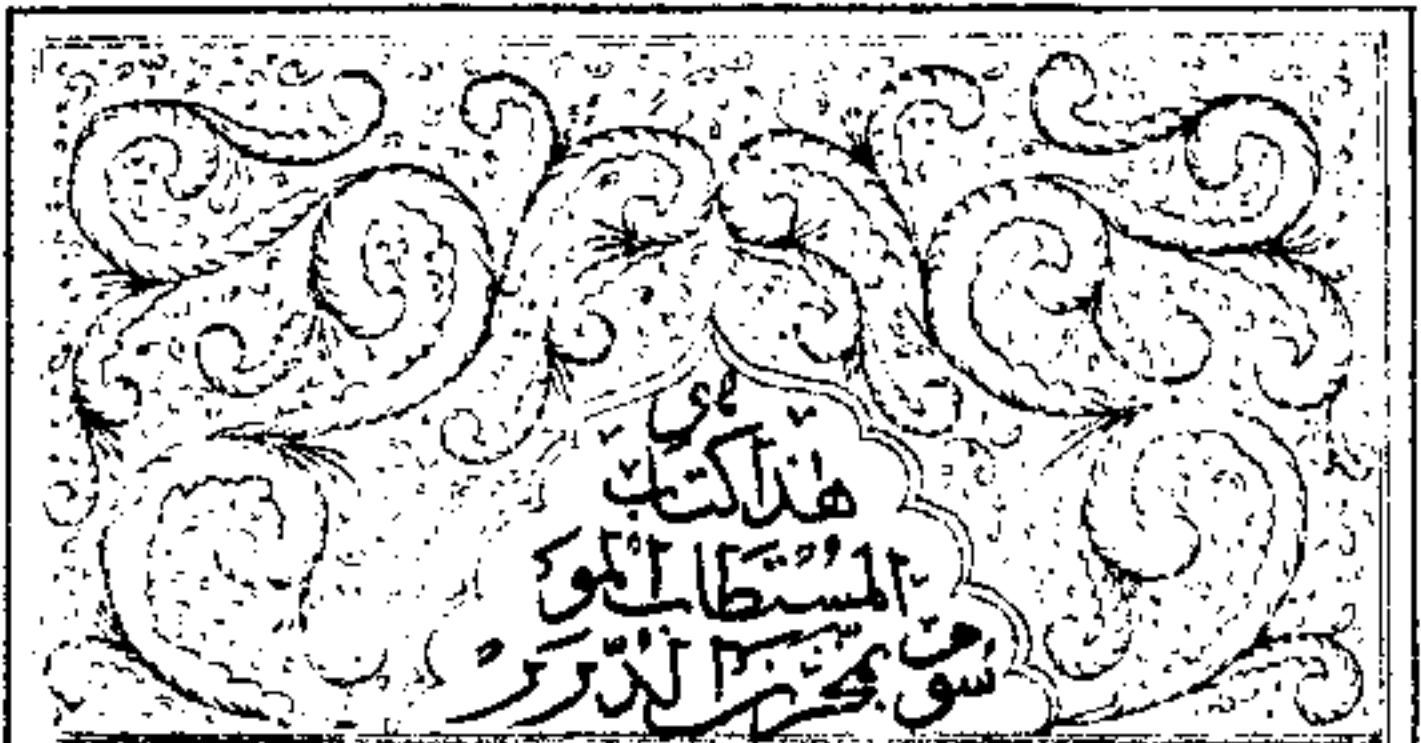 هذا كتاب
المستطاب المو
سوم بمخزن الدرر